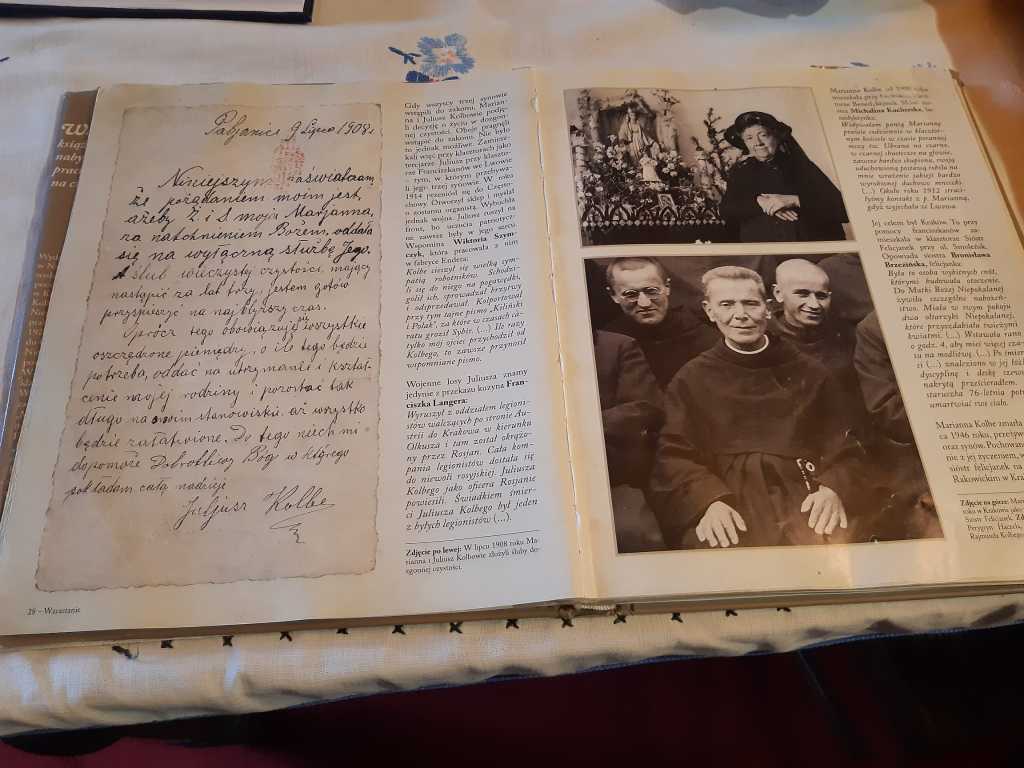 Pabjanice 9 Lipca 1908 r
Niniejszym zaświadczam,
że pożądaniem moim jest,
ażeby Ż. i S. moja Marjanna,
za natchnieniem Bożem, oddała
się na wyłączną służbę Jego.
A ślub wieczysty czystości, mający
nastąpić za lat trzy, jestem gotów
przyspieszyć na najbliższy czas.
Oprócz tego obowiązuję wszystkie
oszczędzone pieniędzy, o ile tego będzie
potrzeba, oddać na utrzymanie i kształ-
cenie mojej rodziny i pozostać tak
długo na swoim stanowisku, aż wszystko
będzie załatwione. Do tego niech mi
dopomoże Dobrotliwy Bóg w którego
pokładam całą nadzieję
Juljusz Kolbe
28 – Wzrastanie
Gdy wszyscy trzej synowie
wstąpili do zakonu, Marian-
na i Juliusz Kolbowie podję-
li decyzję o życiu w dozgon-
nej czystości. Oboje pragnęli
wstąpić do zakonu. Nie było
to jednak możliwe. Zamiesz-
kali więc przy klasztorach jako
tercjarze. Juliusz przy klaszto-
rze Franciszkanów we Lwowie
– tym, w którym przebywa-
li jego trzej synowie. W roku
1914 przeniósł się do Często-
chowy. Otworzył sklep i myślał
o zostaniu organistą. Wybuchła
jednak wojna. Juliusz ruszył na
front, bo uczucia patriotycz-
ne zawsze były w jego sercu.
Wspomina Wiktoria Szym-
czyk, która pracowała z nim
w fabryce Endera:
Kolbe cieszył się wielką sym-
patią robotników. Schodzi-
li się do niego na pogawędki,
golił ich, sprowadzał brzytwy
i odsprzedawał. Kolportował
przy tym tajne pismo „Kiliński
i Polak”, za które w czasach ca-
ratu groził Sybir. (...) Ile razy
tylko mój ojciec przychodził od
Kolbego, to zawsze przynosił
wspomniane pismo.
Wojenne losy Juliusza znamy
jedynie z przekazu kuzyna Fran-
ciszka Langera:
Wyruszył z oddziałem legioni-
stów walczących po stronie Au-
strii do Krakowa w kierunku
Olkusza i tam został okrążo-
ny przez Rosjan. Cała kom-
pania legionistów dostała się
do niewoli rosyjskiej. Juliusza
Kolbego jako oficera Rosjanie
powiesili. Świadkiem śmier-
ci Juliusza Kolbego był jeden
z byłych legionistów (...).
Zdjęcie po lewej: W lipcu 1908 roku Ma-
rianna i Juliusz Kolbowie złożyli śluby do-
zgonnej czystości.
Marianna Kolbe od 1908 roku
mieszkała przy
Michalina Kucharska, be-
nedyktynka:
Widywałam panią Mariannę
prawie codziennie w klasztor-
nym kościele w czasie porannej
mszy św. Ubrana na czarno,
w czarnej chusteczce na głowie,
zawsze bardzo skupiona, swoją
uduchowioną postawą robiła na
mnie wrażenie jakiejś bardzo
wyrobionej duchowo mniszki.
(...) Około roku 1912 straci-
łyśmy kontakt z p. Marianną,
gdyż wyjechała ze Lwowa.
Jej celem był Kraków. Tu przy
pomocy franciszkanów za-
mieszkała w klasztorze Sióstr
Felicjanek przy ul. Smoleńsk.
Opowiada siostra Bronisława
Brzezińska, felicjanka:
Była to osoba wybitnych cnót,
którymi budowała otoczenie.
Do Matki Bożej Niepokalanej
żywiła szczególne nabożeń-
stwo. Miała w swym pokoju
ołtarzyk Niepokalanej,
który przyozdabiała świeżymi
kwiatami. (...) Wstawała rano
o godz. 4, aby mieć więcej cza-
su na modlitwę. (...) Po śmier-
ci (...) znaleziono w jej łóżku
dyscyplinę i deskę
nakrytą prześcieradłem.
staruszka 76-letnia
umartwiać swe ciało.
Marianna Kolbe zmarła
ca 1946 roku, przeżyw
oraz synów. Pochowan
nie z jej życzeniem, w
sióstr felicjanek na
Rakowickim w Kra
Zdjęcie na górze: Mari
roku w Krakowie jako
Sióstr Felicjanek. Zd
Peregryn Haczela,
Rajmunda Kolbego